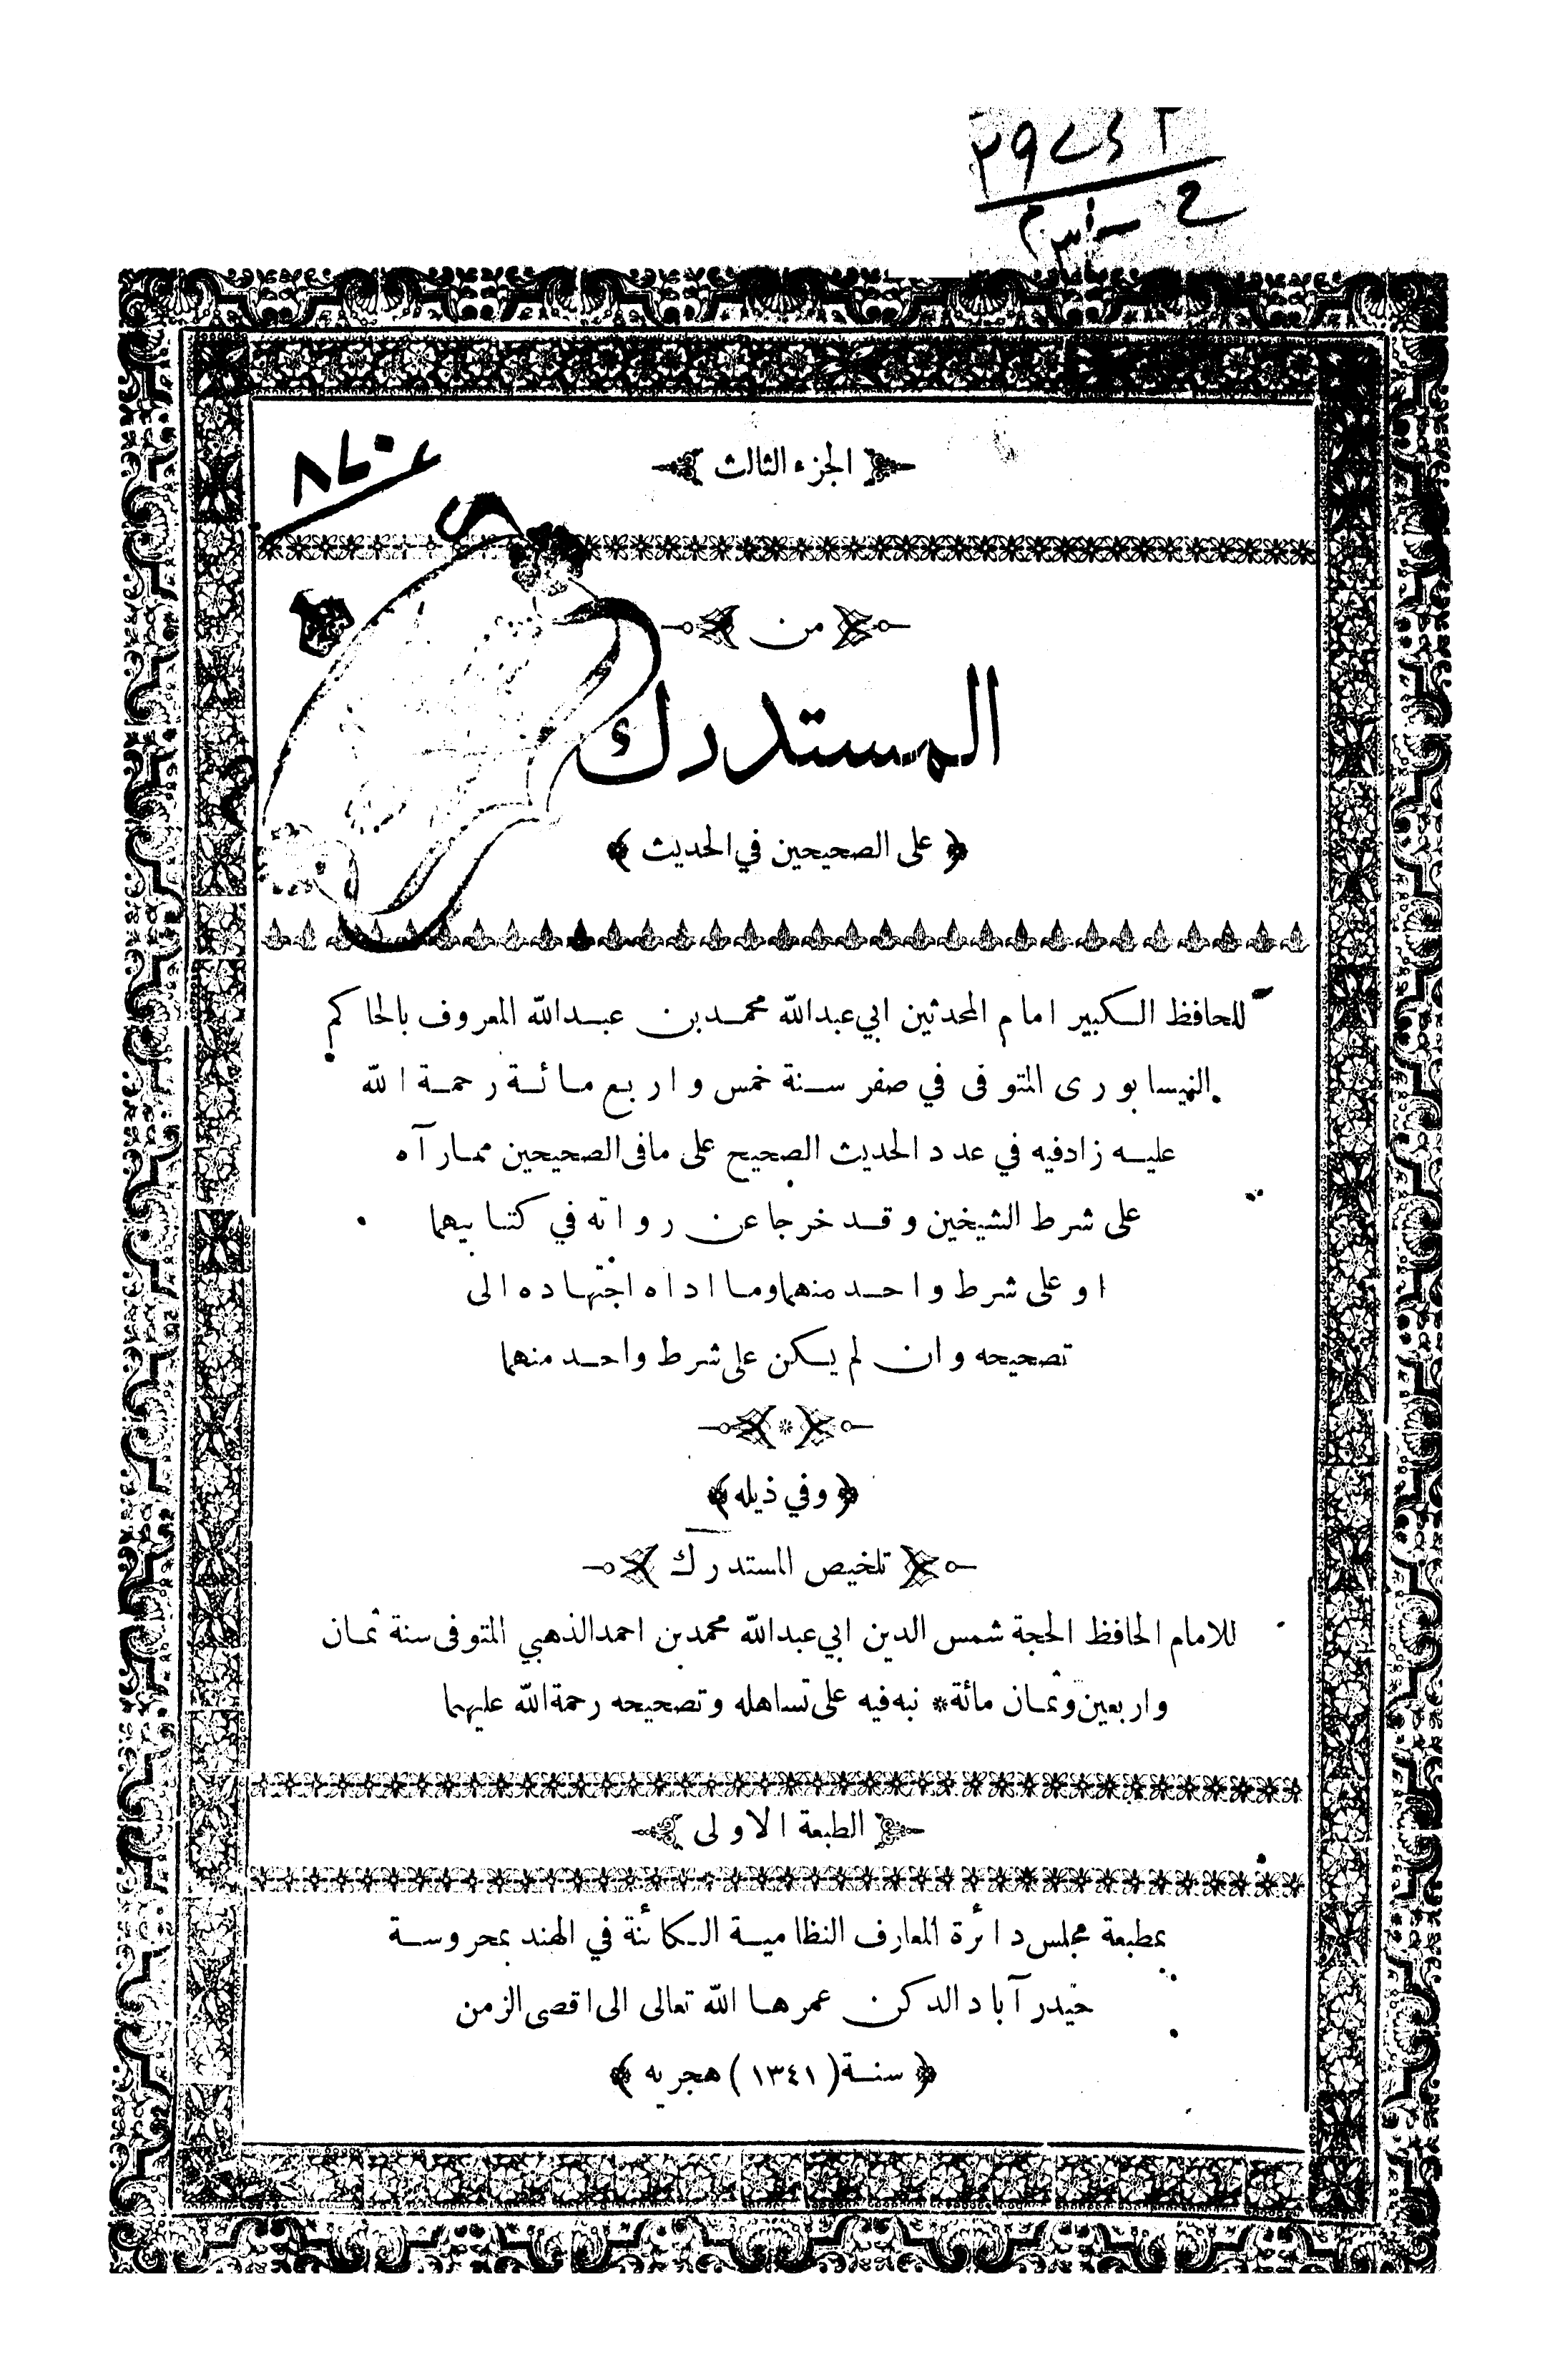 الجزء الثالث
من
المستدرك
على الصحيحين في الحديث
للحافظ الكبير امام المحدثين ابي عبدالله محمد بن عبدالله المعروف بالحاكم
النيسابورى المتوفى في صفر سنة خمس واربع مائة رحمة الله
عليه زاد فيه في عدد الحديث الصحيح على مافى الصحيحين ممارآه
على شرط الشيخين وقد خرجا عن رواته في كتابيهما
او على شرط واحد منهما وما اداه اجتهاده الى
تصحيحه وان لم يكن على شرط واحد منهما
*
وفي ذيله
تلخيص المستدرك
للامام الحافظ الحجة شمس الدين ابي عبدالله محمد بن احمد الذهبي المتوفى سنة ثمان
واربعين وثمان مائة * نبه فيه على تساهله وتصحيحه رحمة الله عليهما
الطبعة الاولى
بمطبعة مجلس دائرة المعارف النظامية الكائنة في الهند بمحروسة
حيدرآباد الدكن عمرها الله تعالى الى اقصى الزمن
سنة (١٣٤١) هجريه